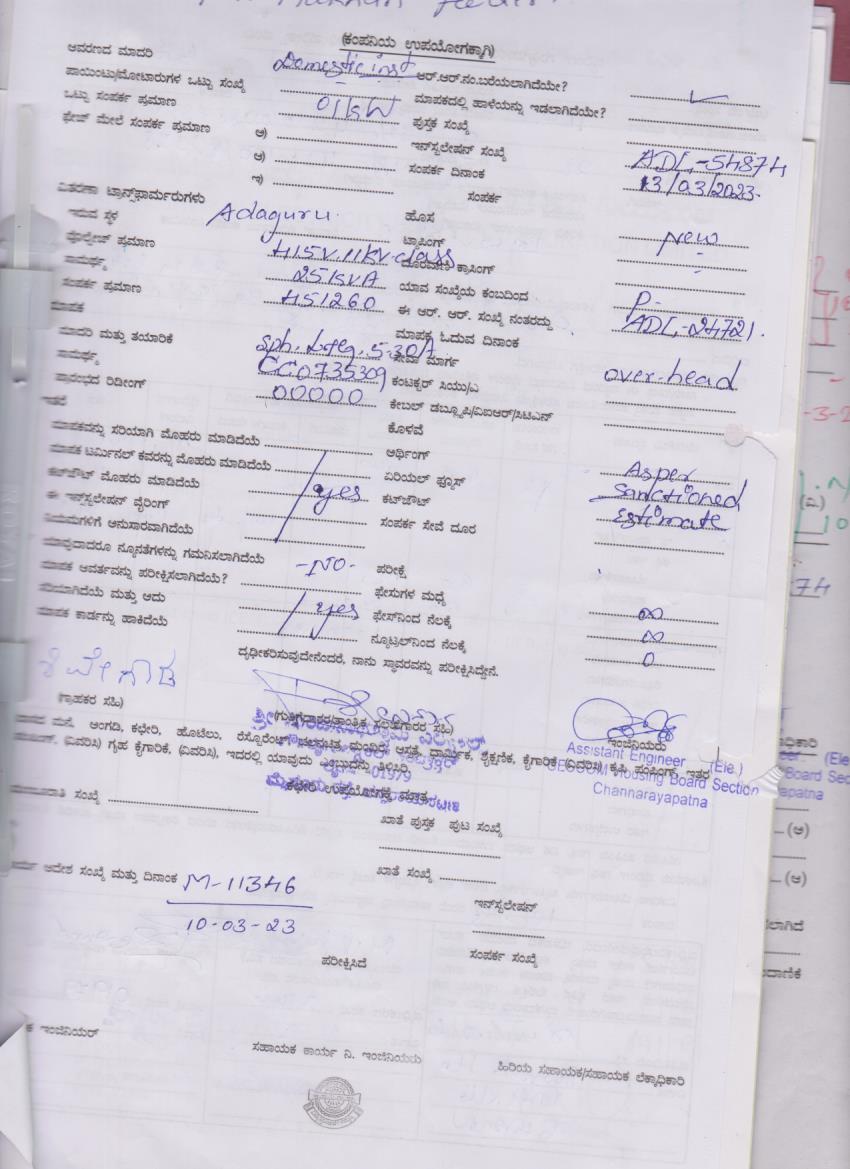 (ಕಂಪನಿಯ ಉಪಯೋಗಕ್ಕಾಗಿ)
ಆವರಣದ ಮಾದರಿ Domestic inst ಆರ್.ಆರ್.ನಂ.ಬರೆಯಲಾಗಿದೆಯೇ?
ಪಾಯಿಂಟು/ಮೋಟಾರುಗಳ ಒಟ್ಟು ಸಂಖ್ಯೆ ಮಾಪಕದಲ್ಲಿ ಹಾಳೆಯನ್ನು ಇಡಲಾಗಿದೆಯೇ?
ಒಟ್ಟು ಸಂಪರ್ಕ ಪ್ರಮಾಣ 01kW ಪುಸ್ತಕ ಸಂಖ್ಯೆ
ಫೇಜ್ ಮೇಲೆ ಸಂಪರ್ಕ ಪ್ರಮಾಣ ಅ) ಇನ್‌ಸ್ಟಲೇಷನ್ ಸಂಖ್ಯೆ ADL-54874
ಆ) ಸಂಪರ್ಕ ದಿನಾಂಕ 13/03/2023
ಇ) ಸಂಪರ್ಕ
ವಿತರಣಾ ಟ್ರಾನ್ಸ್‌ಫಾರ್ಮರುಗಳು
ಇರುವ ಸ್ಥಳ Adaguru ಹೊಸ New
ವೋಲ್ಟೇಜ್ ಪ್ರಮಾಣ 415V.11KV.class ಟ್ಯಾಪಿಂಗ್
ಸಾಮರ್ಥ್ಯ 25kVA ಕ್ರಾಸಿಂಗ್
ಸಂಪರ್ಕ ಪ್ರಮಾಣ 451260 ಯಾವ ಸಂಖ್ಯೆಯ ಕಂಬದಿಂದ P-
ಮಾಪಕ ಈ ಆರ್. ಆರ್. ಸಂಖ್ಯೆ ನಂತರದ್ದು ADL-24721.
ಮಾಪಕ ಓದುವ ದಿನಾಂಕ
ಮಾದರಿ ಮತ್ತು ತಯಾರಿಕೆ Sph. L&g. 5-30A ಸೇವಾ ಮಾರ್ಗ over-head
ಸಾಮರ್ಥ್ಯ CC0735309 ಕಂಟಕ್ಟರ್ ಸಿಯು/ಎ
ಪ್ರಾರಂಭದ ರಿಡೀಂಗ್ 00000 ಕೇಬಲ್ ಡಬ್ಲ್ಯೂಪಿ/ಐಆರ್/ಸಿಟಿಎನ್
ಇತರೆ ಕೊಳವೆ
ಮಾಪಕವನ್ನು ಸರಿಯಾಗಿ ಮೊಹರು ಮಾಡಿದೆಯೆ ಅರ್ಥಿಂಗ್
ಮಾಪಕ ಟರ್ಮಿನಲ್ ಕವರನ್ನು ಮೊಹರು ಮಾಡಿದೆಯೆ ಏರಿಯಲ್ ಫ್ಯೂಸ್ As per
ಕಟ್‌ಔಟ್ ಮೊಹರು ಮಾಡಿದೆಯೆ yes ಕಟ್‌ಔಟ್ sanctioned
ಈ ಇನ್ಸ್‌ಟಲೇಷನ್ ವೈರಿಂಗ್ ಸಂಪರ್ಕ ಸೇವೆ ದೂರ Estimate
ನಿಯಮಗಳಿಗೆ ಅನುಸಾರವಾಗಿದೆಯೆ
ಯಾವುದಾದರೂ ನ್ಯೂನತೆಗಳನ್ನು ಗಮನಿಸಲಾಗಿದೆಯೆ -NO- ಪರೀಕ್ಷೆ
ಮಾಪಕ ಆವರ್ತವನ್ನು ಪರೀಕ್ಷಿಸಲಾಗಿದೆಯೆ? ಫೇಸುಗಳ ಮಧ್ಯೆ ∞
ಸರಿಯಾಗಿದೆಯೆ ಮತ್ತು ಅದು yes ಫೇಸ್‌ನಿಂದ ನೆಲಕ್ಕೆ ∞
ಮಾಪಕ ಕಾರ್ಡನ್ನು ಹಾಕಿದೆಯೆ ನ್ಯೂಟ್ರಲ್‌ನಿಂದ ನೆಲಕ್ಕೆ 0
ದೃಢೀಕರಿಸುವುದೇನೆಂದರೆ, ನಾನು ಸ್ಥಾವರವನ್ನು ಪರೀಕ್ಷಿಸಿದ್ದೇನೆ.
(ಗ್ರಾಹಕರ ಸಹಿ) ಇಂಜಿನಿಯರು
Assistant Engineer (Ele.)
Housing Board Section
Channarayapatna
ಅಂಗಡಿ, ಕಛೇರಿ, ಹೊಟೇಲು, ರೆಸ್ಟೊರೆಂಟ್
(ವಿವರಿಸಿ) ಗೃಹ ಕೈಗಾರಿಕೆ, (ವಿವರಿಸಿ), ಇದರಲ್ಲಿ ಯಾವುದು ಎಂಬುದನ್ನು ತಿಳಿಸಿರಿ.
ಕಛೇರಿ ಉಪಯೋಗಕ್ಕೆ ಮಾತ್ರ
ಸಂಖ್ಯೆ ಖಾತೆ ಪುಸ್ತಕ ಪುಟ ಸಂಖ್ಯೆ
ಖಾತೆ ಸಂಖ್ಯೆ
ಆದೇಶ ಸಂಖ್ಯೆ ಮತ್ತು ದಿನಾಂಕ M-11346
10-03-23
ಇನ್‌ಸ್ಟಲೇಷನ್
ಸಂಪರ್ಕ ಸಂಖ್ಯೆ
ಪರೀಕ್ಷಿಸಿದೆ
ಕ ಇಂಜಿನಿಯರ್
ಸಹಾಯಕ ಕಾರ್ಯ ನಿ. ಇಂಜಿನಿಯರು
ಹಿರಿಯ ಸಹಾಯಕ/ಸಹಾಯಕ ಲೆಕ್ಕಾಧಿಕಾರಿ